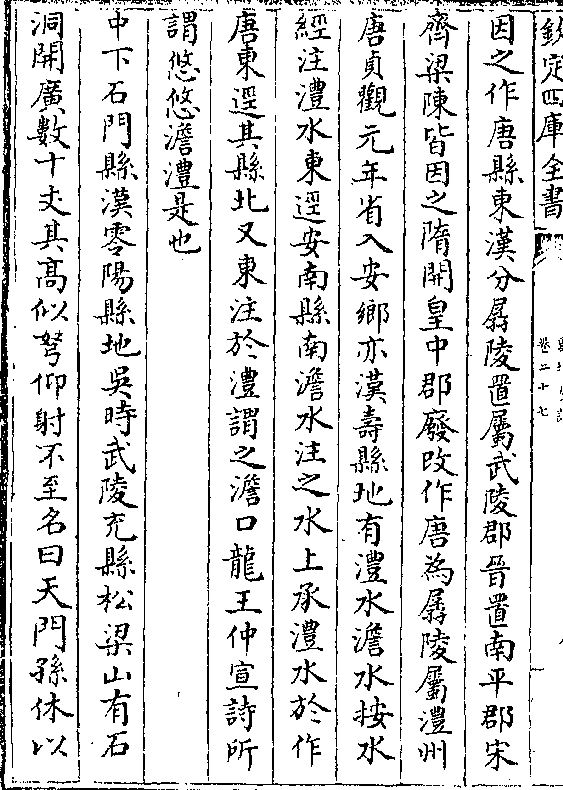 欽定四庫全書
卷二十七
因之作唐縣東漢分孱陵置屬武陵郡晉置南平郡宋
齊梁陳皆因之隋開皇中郡廢改作唐為孱陵屬澧州
唐貞觀元年省入安鄉亦漢壽縣地有澧水澹水按水
經注澧水東逕安南縣南澹水注之水上承澧水於作
唐東逕其縣北又東注於澧謂之澹口龍王仲宣詩所
謂悠悠澹澧是也
中下石門縣漢零陽縣地吳時武陵充縣松梁山有石
洞開廣數十丈其高似弩仰射不至名曰天門孫休以